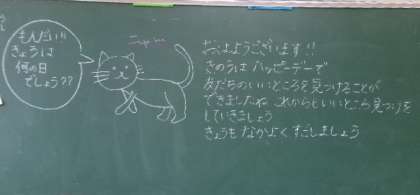 もんだい!!
きょうは
何の日
でしょう??
おはようございます!!
きのうは ハッピーデーで
友だちのいいところを見つけることが
できましたね これからもいいところ見つけを
していきましょう
きょうも なかよく すごしましょう